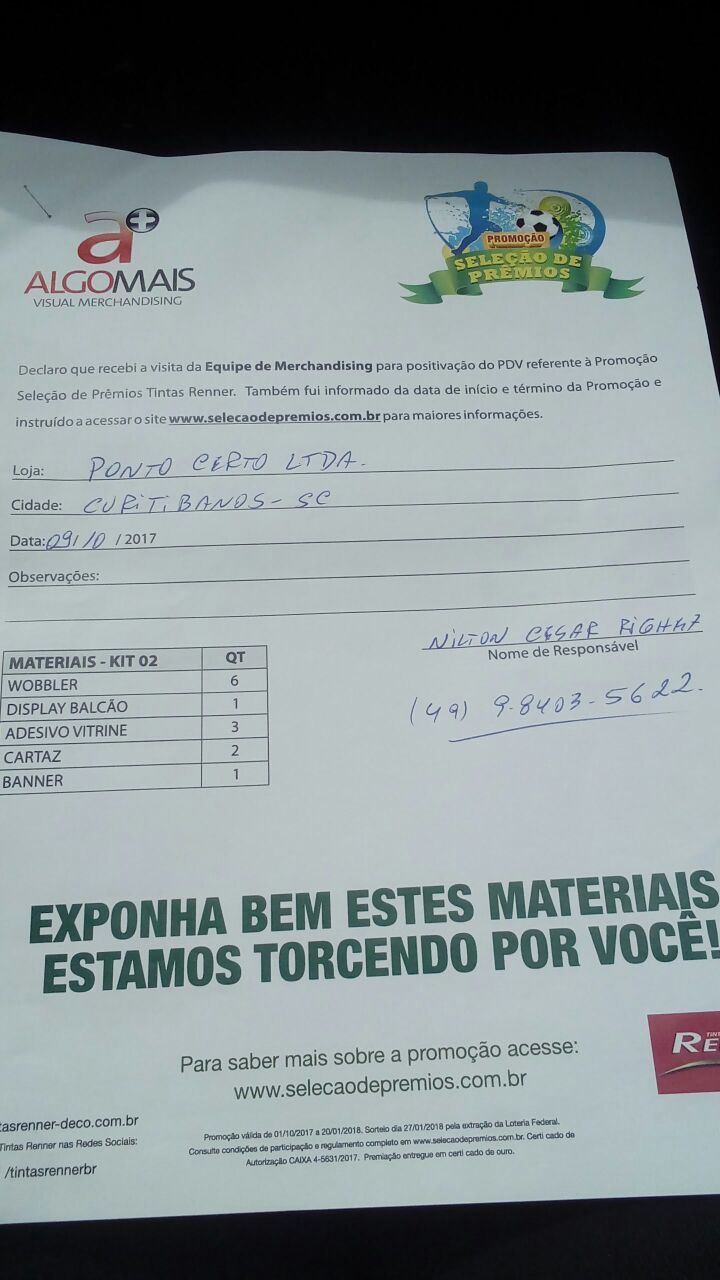 a+
ALGOMAIS
VISUAL MERCHANDISING
PROMOÇÃO
SELEÇÃO DE
PRÊMIOS
Declaro que recebi a visita da Equipe de Merchandising para positivação do PDV referente à Promoção
Seleção de Prêmios Tintas Renner. Também fui informado da data de início e término da Promoção e
instruído a acessar o site www.selecaodepremios.com.br para maiores informações.
Loja: PONTO CERTO LTDA.
Cidade: CURITIBANOS - SC
Data: 09/10 / 2017
Observações:
NILTON CESAR
Nome de Responsável
(49) 9.8403-5622.
MATERIAIS - KIT 02 QT
WOBBLER 6
DISPLAY BALCÃO 1
ADESIVO VITRINE 3
CARTAZ 2
BANNER 1
EXPONHA BEM ESTES MATERIAIS
ESTAMOS TORCENDO POR VOCÊ!
Para saber mais sobre a promoção acesse:
www.selecaodepremios.com.br
TIN
RE
tasrenner-deco.com.br
Tintas Renner nas Redes Sociais:
/tintasrennerbr
Promoção válida de 01/10/2017 a 20/01/2018. Sorteio dia 27/01/2018 pela extração da Loteria Federal.
Consulte condições de participação e regulamento completo em www.selecaodepremios.com.br. Certi cado de
Autorização CAIXA 4-5631/2017. Premiação entregue em certi cado de ouro.